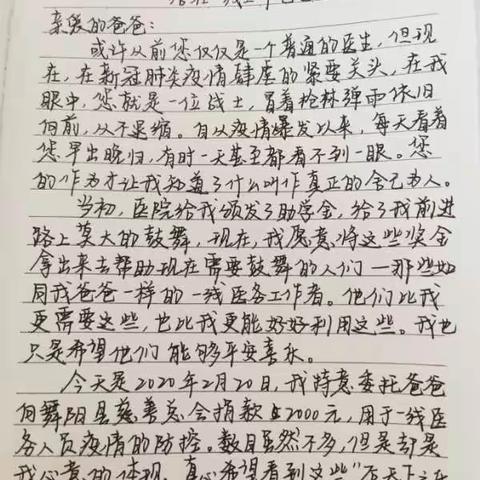 亲爱的爸爸：
或许从前您仅仅是一个普通的医生，但现
在，在新冠肺炎疫情肆虐的紧要关头，在我
眼中，您就是一位战士，冒着枪林弹雨依旧
向前，从不退缩。自从疫情爆发以来，每天看着
您早出晚归，有时一天甚至都看不到一眼。您
的作为才让我知道了什么叫作真正的舍己为人。
当初，医院给我颁发了助学金，给了我前进
路上莫大的鼓舞，现在，我愿意将这些奖金
拿出来去帮助现在需要鼓舞的人们—那些如
同我爸爸一样的一线医务工作者。他们比我
更需要这些，也比我更能好好利用这些。我也
只是希望他们能够平安喜乐。
今天是2020年2月20日，我特意委托爸爸
向舞阳县慈善总会捐款2000元，用于一线医
务人员疫情的防控。数目虽然不多，但是却是
我心意的体现，真心希望看到这些"